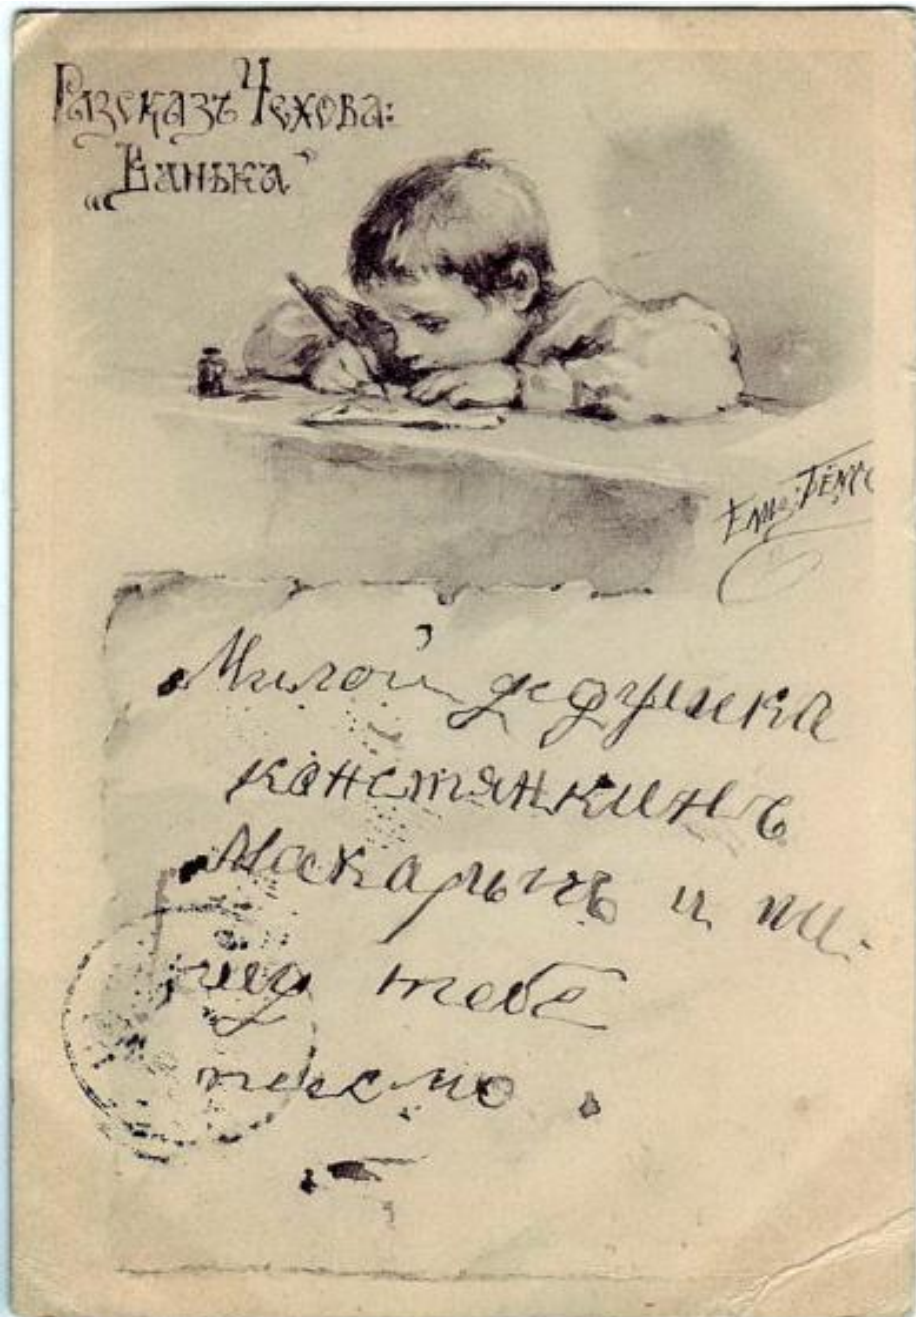 Разсказъ Чехова:
„Ванька"
Милой дедушка
канстянкинъ
Макарычъ и пи-
шу тебѣ
писмо.